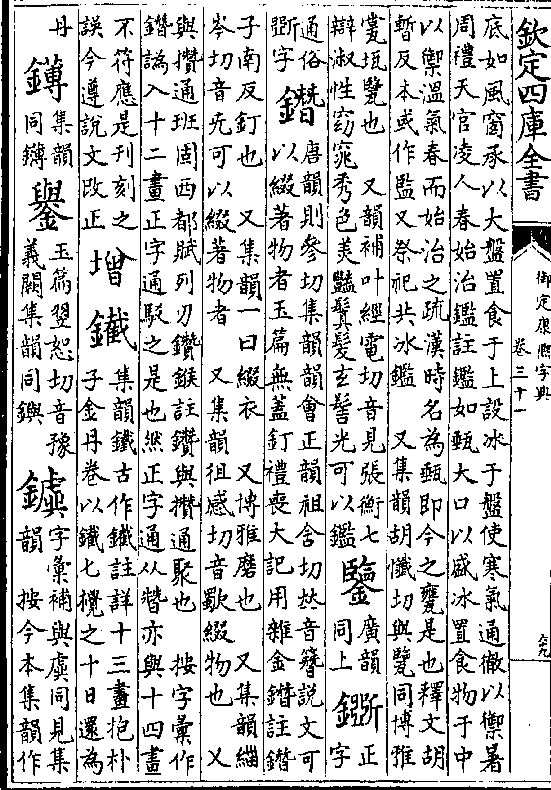 欽定四庫全書
御定康熙字典
卷三十一
底如風窗承以大盤置食于上設冰于盤使寒氣通徹以禦暑
周禮天官凌人春始治鑑註鑑如甀大口以盛冰置食物于中
以禦溫氣春而始治之疏漢時名為甀即今之甕是也釋文胡
暫反本或作監又祭祀共冰鑑 又集韻胡懺切與覽同博雅
㼜瓭甖也 又韻補叶經電切音見張衡七
辯淑性窈窕秀色美豔鬒髮玄髻光可以鑑
鑒
廣韻同上
鏩
正字
通俗斵字
鐕
唐韻則參切集韻韻會正韻祖含切𠀤音簪說文可
以綴著物者玉篇無蓋釘禮喪大記用雜金鐕註鐕
子南反釘也 又集韻一曰綴衣 又博雅磨也 又集韻緇
岑切音兂可以綴著物者 又集韻徂感切音歜綴物也 又
與攢通班固西都賦列刃鑽鍭註鑽與攢通聚也 按字彙作
鐟譌入十二畫正字通駁之是也然正字通从朁亦與十四畫
不符應是刊刻之
誤今遵說文改正
增
鐵
集韻鐵古作鐵註詳十三畫抱朴
子金丹卷以鐵七攪之十日還為
丹
鏄
集韻同鏄
鑋
玉篇翌恕切音豫
義闕集韻同鐭
鑢
字彙補與虡同見集
韻 按今本集韻作